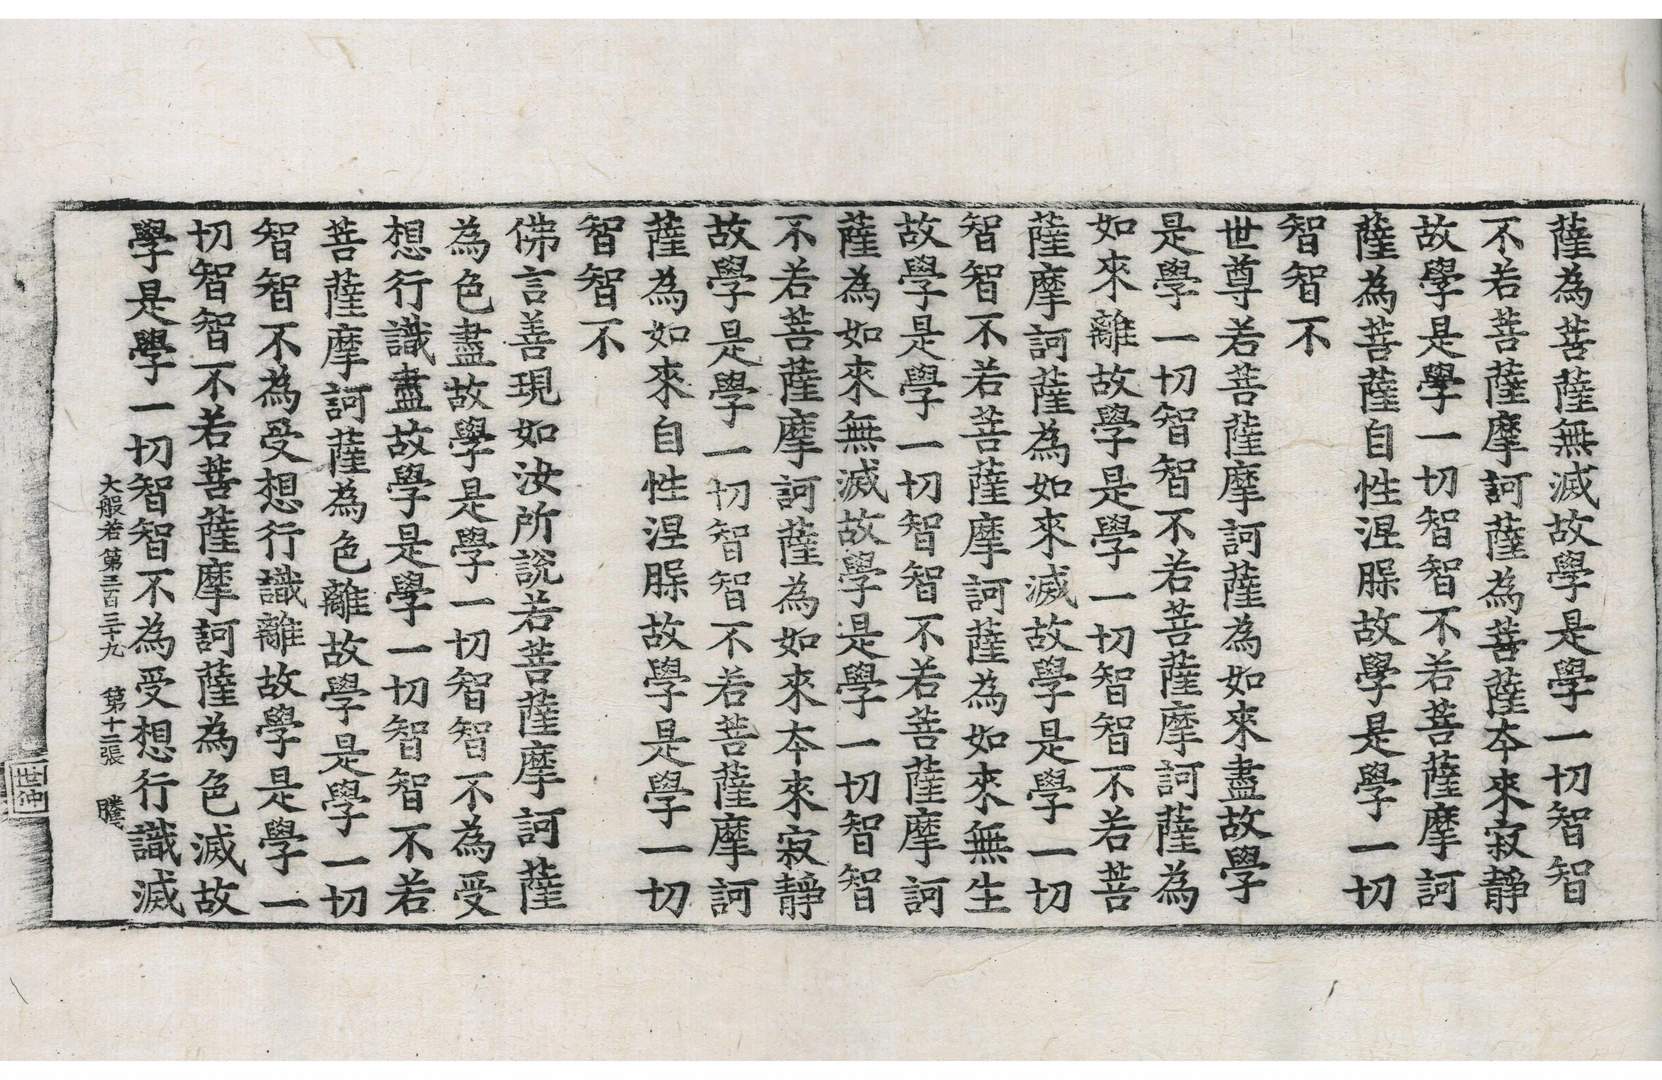 薩為菩薩無滅故學是學一切智智
不若菩薩摩訶薩為菩薩本來寂靜
故學是學一切智智不若菩薩摩訶
薩為菩薩自性涅槃故學是學一切
智智不
世尊若菩薩摩訶薩為如來盡故學
是學一切智智不若菩薩摩訶薩為
如來離故學是學一切智智不若菩
薩摩訶薩為如來滅故學是學一切
智智不若菩薩摩訶薩為如來無生
故學是學一切智智不若菩薩摩訶
薩為如來無滅故學是學一切智智
不若菩薩摩訶薩為如來本來寂靜
故學是學一切智智不若菩薩摩訶
薩為如來自性涅槃故學是學一切
智智不
佛言善現如汝所說若菩薩摩訶薩
為色盡故學是學一切智智不為受
想行識盡故學是學一切智智不若
菩薩摩訶薩為色離故學是學一切
智智不為受想行識離故學是學一
切智智不若菩薩摩訶薩為色滅故
學是學一切智智不為受想行識滅
大般若第三百三十九 第十二張 騰
世沖